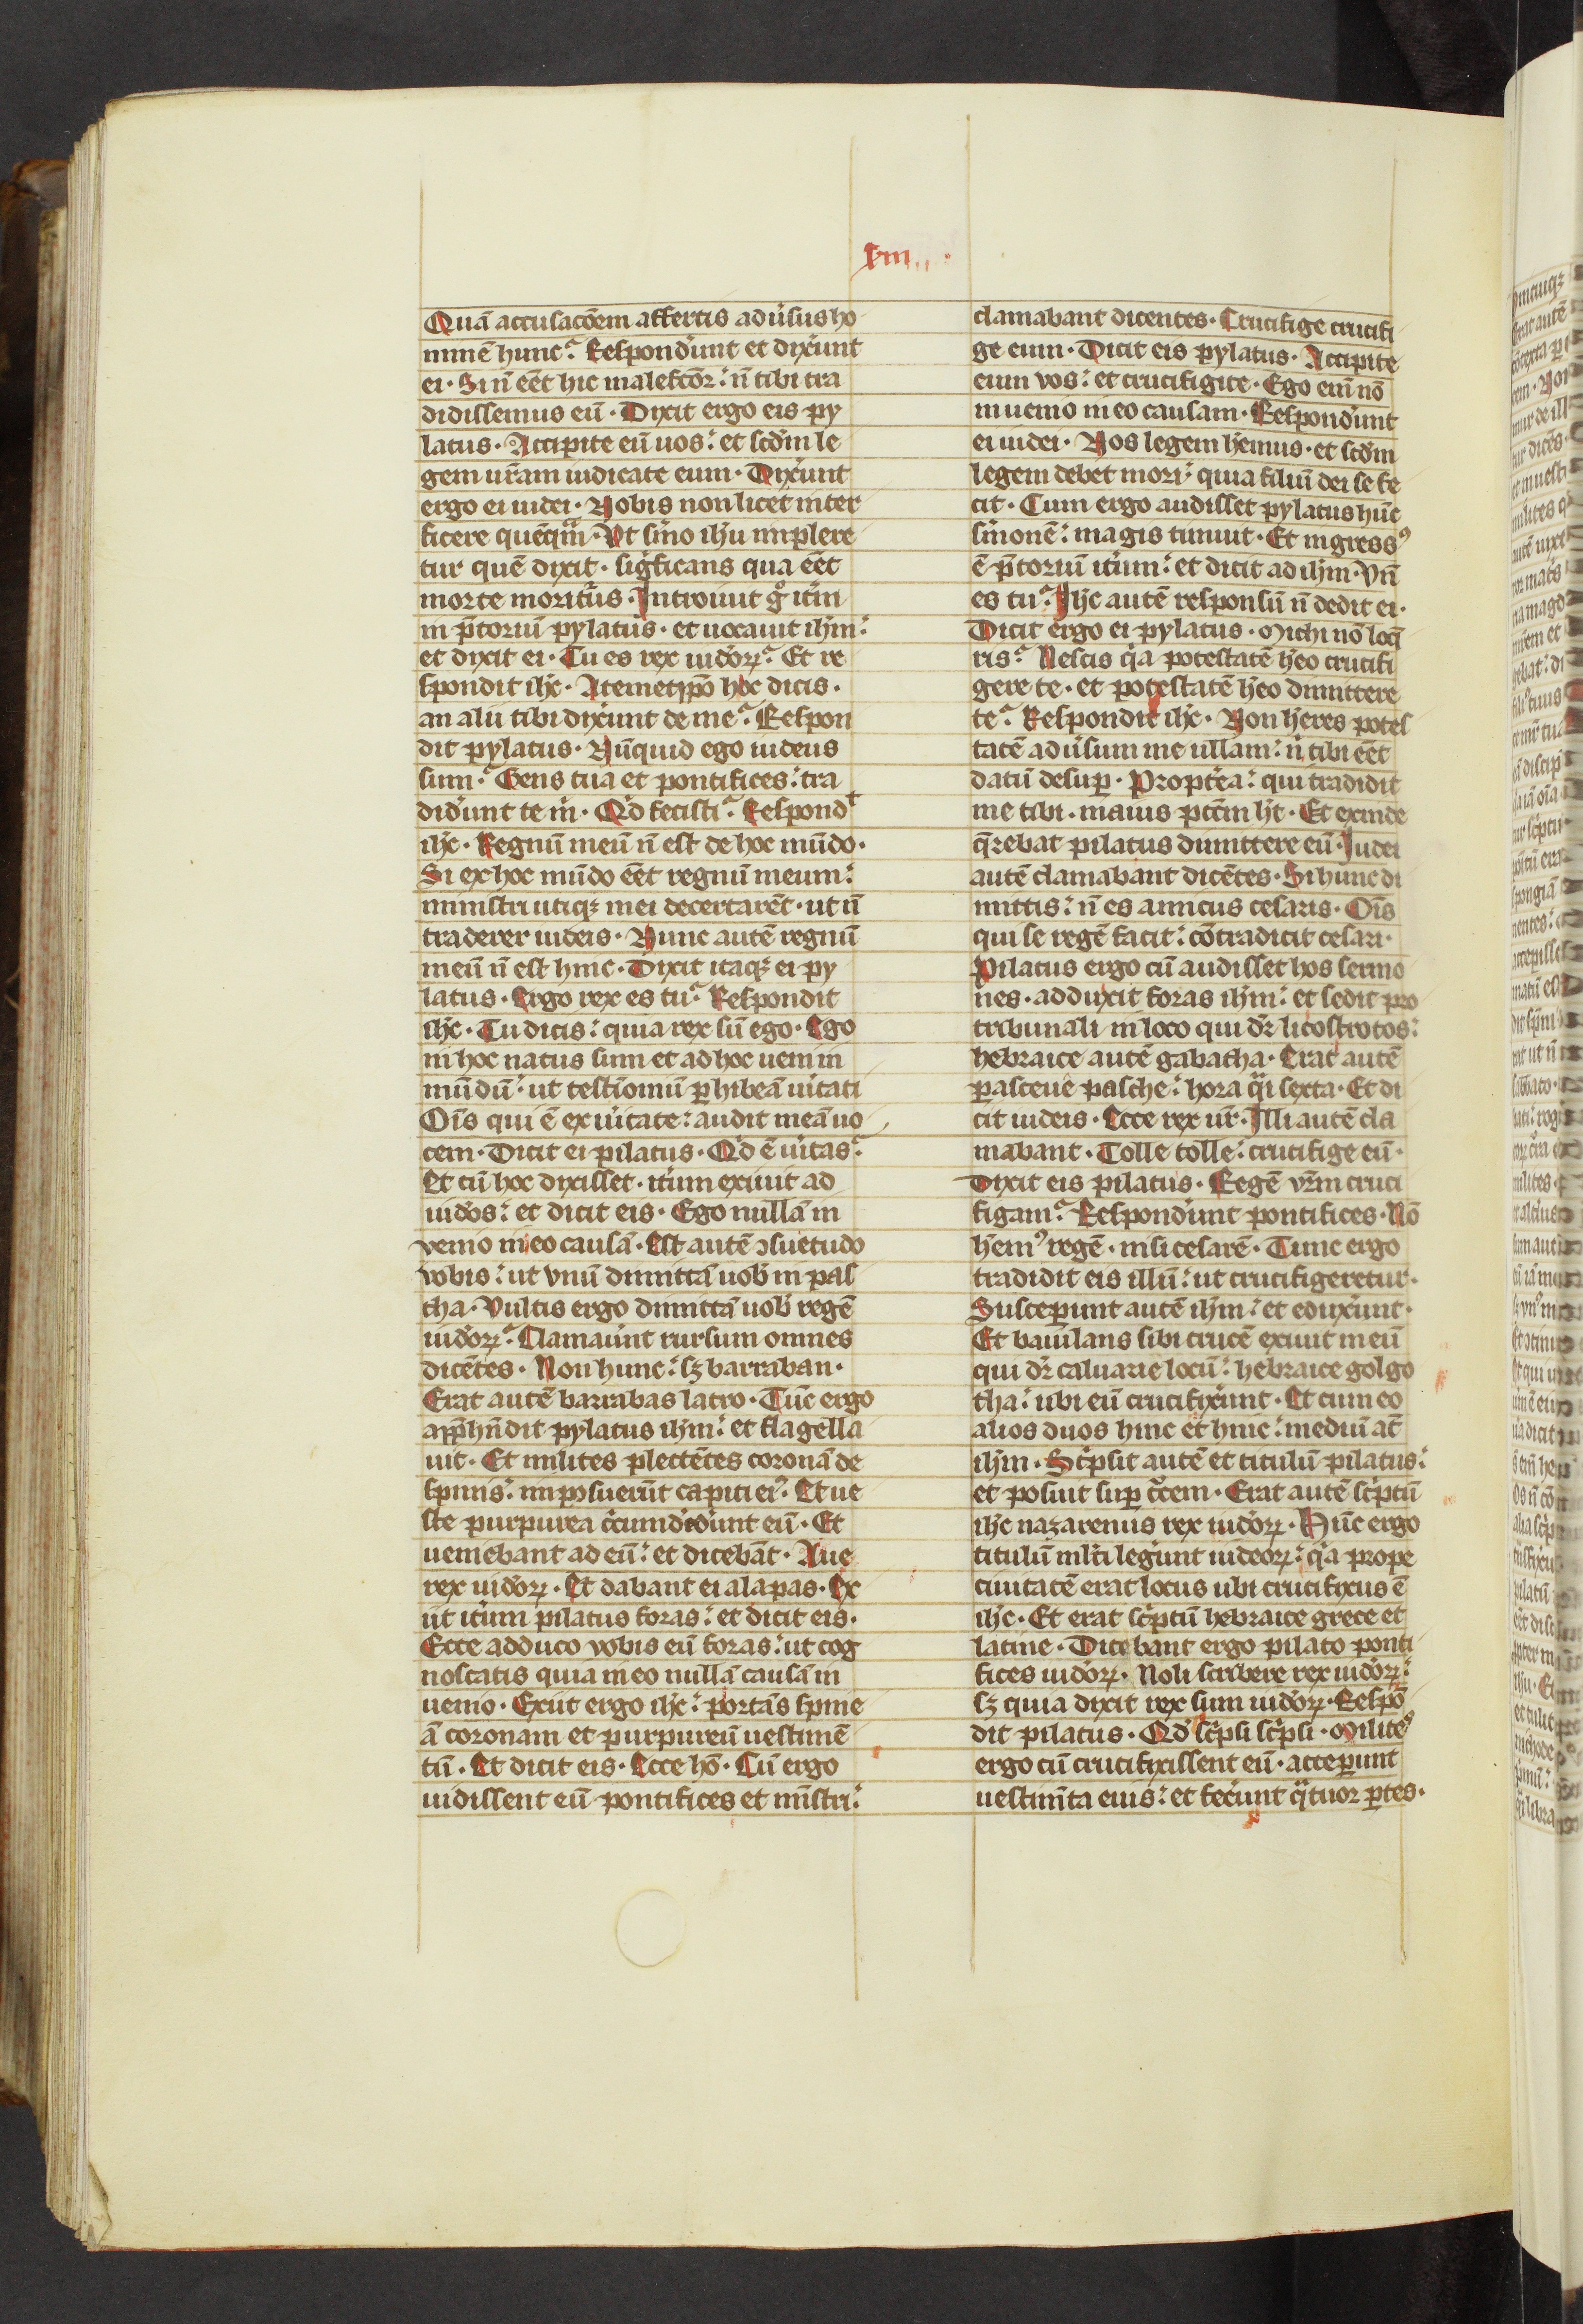 xiii
Quā accusacōem affertis aduʼsus ho
minē hunc? Respondʼunt et dixʼunt
ei · Si n̄ eēt hic malefcōr: n̄ tibi tra
didissemus eū · Dixit ergo eis py
latus · Accipite eū uos: et scdʼm le
gem ur̄am iudicate eum · Dixʼunt
ergo ei iudei · Nobis non licet inter
ficere quēqͣm · Vt sʼmo ihʼu implere
tur quē dixit · sigʼficans qua eēt
morte moritʼus · Introiuit gͦ itʼm
in p̄toriū pylatus · et uocauit ihʼm:
et dixit ei · Tu es rex iudʼoꝝ? Et re
spondit ihʼc · A temetipō hoc dicis ·
an alii tibi dixʼunt de me? Respon
dit pylatus · Nūquid ego iudeus
sum? Gens tua et pontifices: tra
didʼunt te m̄ · Qʼd fecisti? Respondᵗ
ihʼc · Regnū meū n̄ est de hoc mūdo ·
Si ex hoc mūdo eēt regnū meum:
ministri utiqꝫ mei decertarēt · ut n̄
traderer iudeis · Nunc autē regnū
meū n̄ est hinc · Dixit itaqꝫ ei py
latus · Ergo rex es tu? Respondit
ihʼc · Tu dicis: quia rex sū ego · Ego
in hoc natus sum et ad hoc ueni in
mūdū: ut testīomū ꝑhibeā uʼitati
Oīs qui ē ex uʼitate: audit meā uo
cem · Dicit ei pilatus · Qʼd ē uʼitas?
Et cū hoc dixisset · itʼum exiuit ad
iudʼos: et dicit eis · Ego nullā in
uenio in eo causā · Est autē ɔsuetudo
vobis: ut vnū dimittā uobʼ in pas
cha · Vultis ergo dimittā uobʼ regē
iudʼoꝝ? Clamauʼnt rursum omnes
dicētes · Non hunc: sꝫ barraban ·
Erat autē barrabas latro · Tūc ergo
app̄hn̄dit pylatus ihʼm: et flagella
uit · Et milites plectētes coronā de
spinis: imposuerūt capiti eiꝰ · Et ue
ste purpurea cʼcumdedʼunt eū · Et
ueniebant ad eū: et dicebāt · Aue
rex iudʼoꝝ · Et dabant ei alapas · Ex
iit itʼum pilatus foras: et dicit eis ·
Ecce adduco vobis eū foras: ut cog
noscatis quia in eo nullā causā in
uenio · Exiit ergo ihʼc: portās spine
ā coronam et purpureū uestimē
tū · Et dicit eis · Ecce hō · Cū ergo
uidissent eū pontifices et mīstri:
clamabant dicentes · Crucifige crucifi
ge eum · Dicit eis pylatus · Accipite
eum vos: et crucifigite · Ego eni̅ nō
inuenio in eo causam · Respondʼunt
ei iudei · Nos legem hēmus · et scdʼm
legem debet mori: quia filiū dei se fe
cit · Cum ergo audisset pylatus hūc
sʼmonē: magis timuit · Et ingressꝰ
ē p̄toriū itʼum: et dicit ad ihʼm · Vn̄
es tu? Ihʼc autē responsū n̄ dedit ei ·
Dicit ergo ei pylatus · Michi nō loq̄
ris? Nescis qʼa potestatē hēo crucifi
gere te · et potestatē hēo dimittere
te? Respondit ihʼc · Non hēres potes
tatē aduʼsum me ullam: nʼ tibi eēt
datū desuꝑ · Proptʼea: qui tradidit
me tibi · maius pctm̄ hʼt · Et exinde
q̄rebat pilatus dimittere eū · Iudei
autē clamabant dicētes · Si hunc di
mittis: n̄ es amicus cesaris · Oīs
qui se regē facit: cōtradicit cesari ·
Pilatus ergo cū audisset hos sermo
nes · adduxit foras ihʼm: et sedit pro
tribunali in loco qui dʼr licostrotos:
hebraice autē gabatha · Erat autē
ꝑasceue pasche: hora qͣi sexta · Et di
cit iudeis · Ecce rex ur̄ · Illi autē cla
mabant · Tolle tolle: crucifige eū ·
Dixit eis pilatus · Regē vr̄m cruci
figam? Respondʼunt pontifices · Nō
hēmꝰ regē · nisi cesarē · Tunc ergo
tradidit eis illū: ut crucifigeretur ·
Susceꝑunt autē ihʼm: et eduxʼunt ·
Et baiulans sibi crucē exiuit in eū
qui dʼr caluarie locū: hebraice golgo
tha: ubi eū crucifixʼunt · Et cum eo
alios duos hinc et hinc: mediū at̄
ihʼm · Scʼpsit autē et titulū pilatus:
et posuit suꝑ cͬcem · Erat autē scʼptū
ihʼc nazarenus rex iudʼoꝝ · Hūc ergo
titulū ml̄ti legʼunt iudeoꝝ: qʼa prope
ciuitatē erat locus ubi crucifixus ē
ihʼc · Et erat scʼptū hebraice grece et
latine · Dicebant ergo pilato ponti
fices iudʼoꝝ · Noli scribere rex iudʼoꝝ:
sꝫ quia dixit rex sum iudʼoꝝ · Respō
dit pilatus · Qʼd scʼpsi scʼpsi · Militeꝰ
ergo cū crucifixissent eū · acceꝑunt
uestimʼta eius: et fecʼunt qͣtuor ꝑtes ·